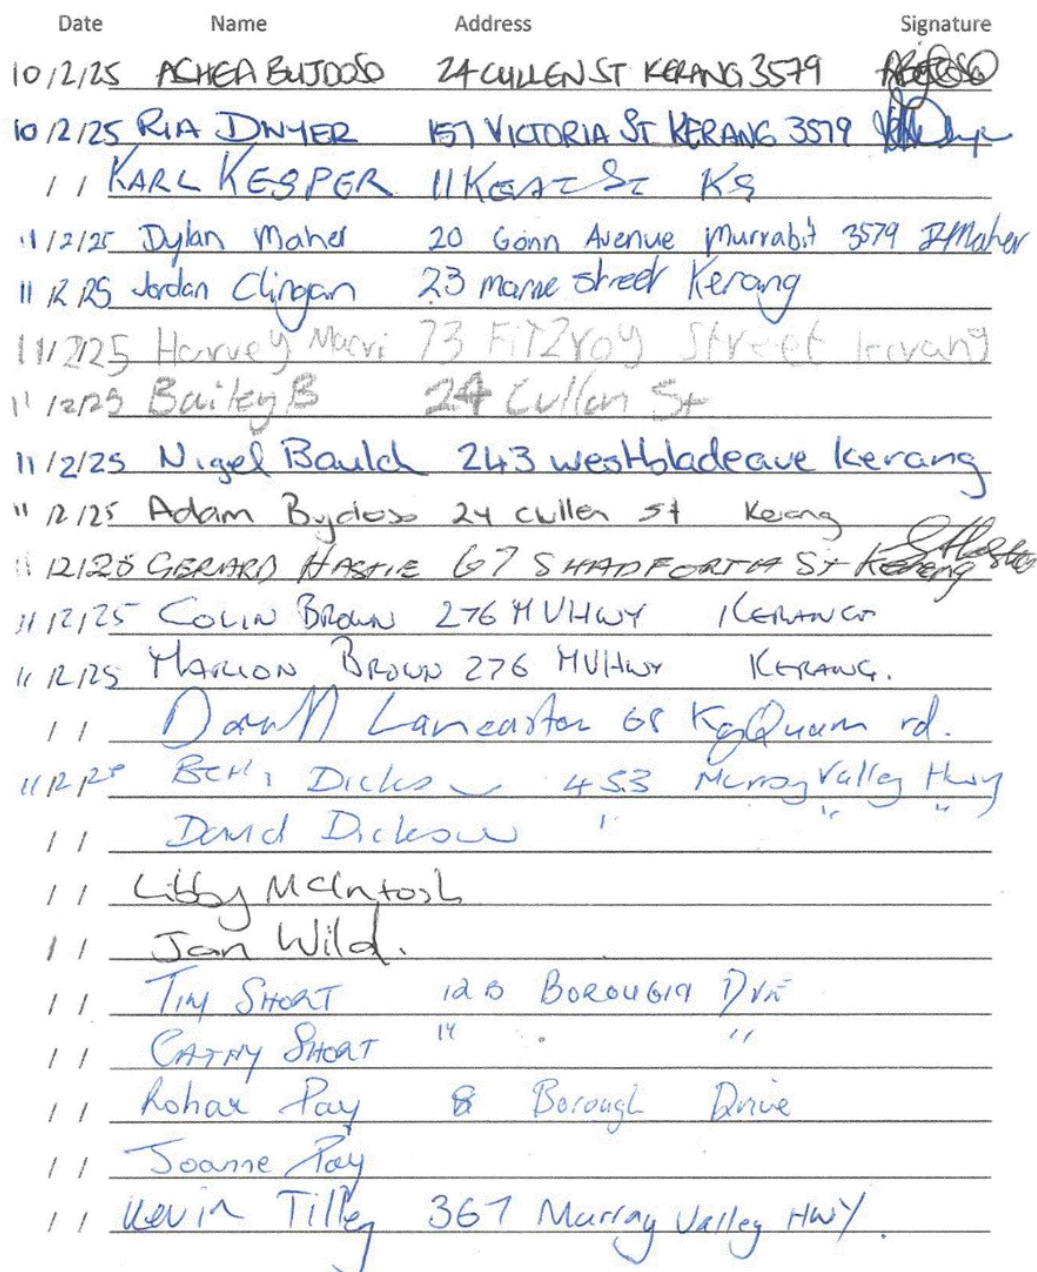 Date Name Address Signature
10/2/25 ACHEA BUJDOSO 24 CULLEN ST KERANG 3579
10/2/25 RIA DWYER 157 VICTORIA ST KERANG 3579
/ / KARL KESPER 11 St
11/2/25 Dylan Maher 20 Gonn Avenue Murrabit 3579 D Maher
11/2/25 Jordan Clingan 23 marne street Kerang
11/2/25 Harvey 73 FiTZroy Street kerang
11/2/25 Bailey B 24 Cullen St
11/2/25 Nigel Bauld 243 westbladeave kerang
11/2/25 Adam Bujdoso 24 cullen st Kerang
11/2/25 GERARD HASTIE 67 SHADFORTH St Kerang
11/2/25 COLIN BROWN 276 MVHWY KERANG
11/2/25 MARION BROWN 276 MVHWY KERANG.
/ / Lancaster 68 rd.
11/2/25 Dickson 453 Murray Valley Hwy
/ / David Dickson " " "
/ / Libby McIntosh
/ / Jan Wild.
/ / TIM SHORT 12B BOROUGH DVE
/ / CATHY SHORT " " "
/ / Rohan Pay 8 Borough Drive
/ / Joanne Pay
/ / Kevin Tilley 367 Murray Valley HWY.